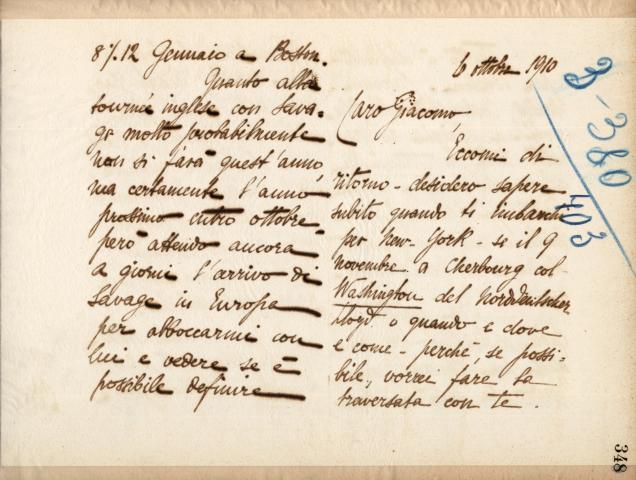 6 ottobre 1910
Caro Giacomo,
Eccomi di
ritorno - desidero sapere
subito quando ti imbarchi
per New-York - se il 9
novembre a Cherbourg col
Washington del Norddeutscher
Lloyd o quando e dove
e come - perchè, se possi-
bile, vorrei fare la
traversata con te.
8 /. 12 Gennaio a Boston.
Quanto alla
tournée inglese con Sava-
ge molto probabilmente
non si farà quest'anno,
ma certamente l'anno
prossimo entro ottobre,
però attendo ancora
a giorni l'arrivo di
Savage in Europa
per abboccarmi con
lui e vedere se è
possibile definire
3-380
403
348